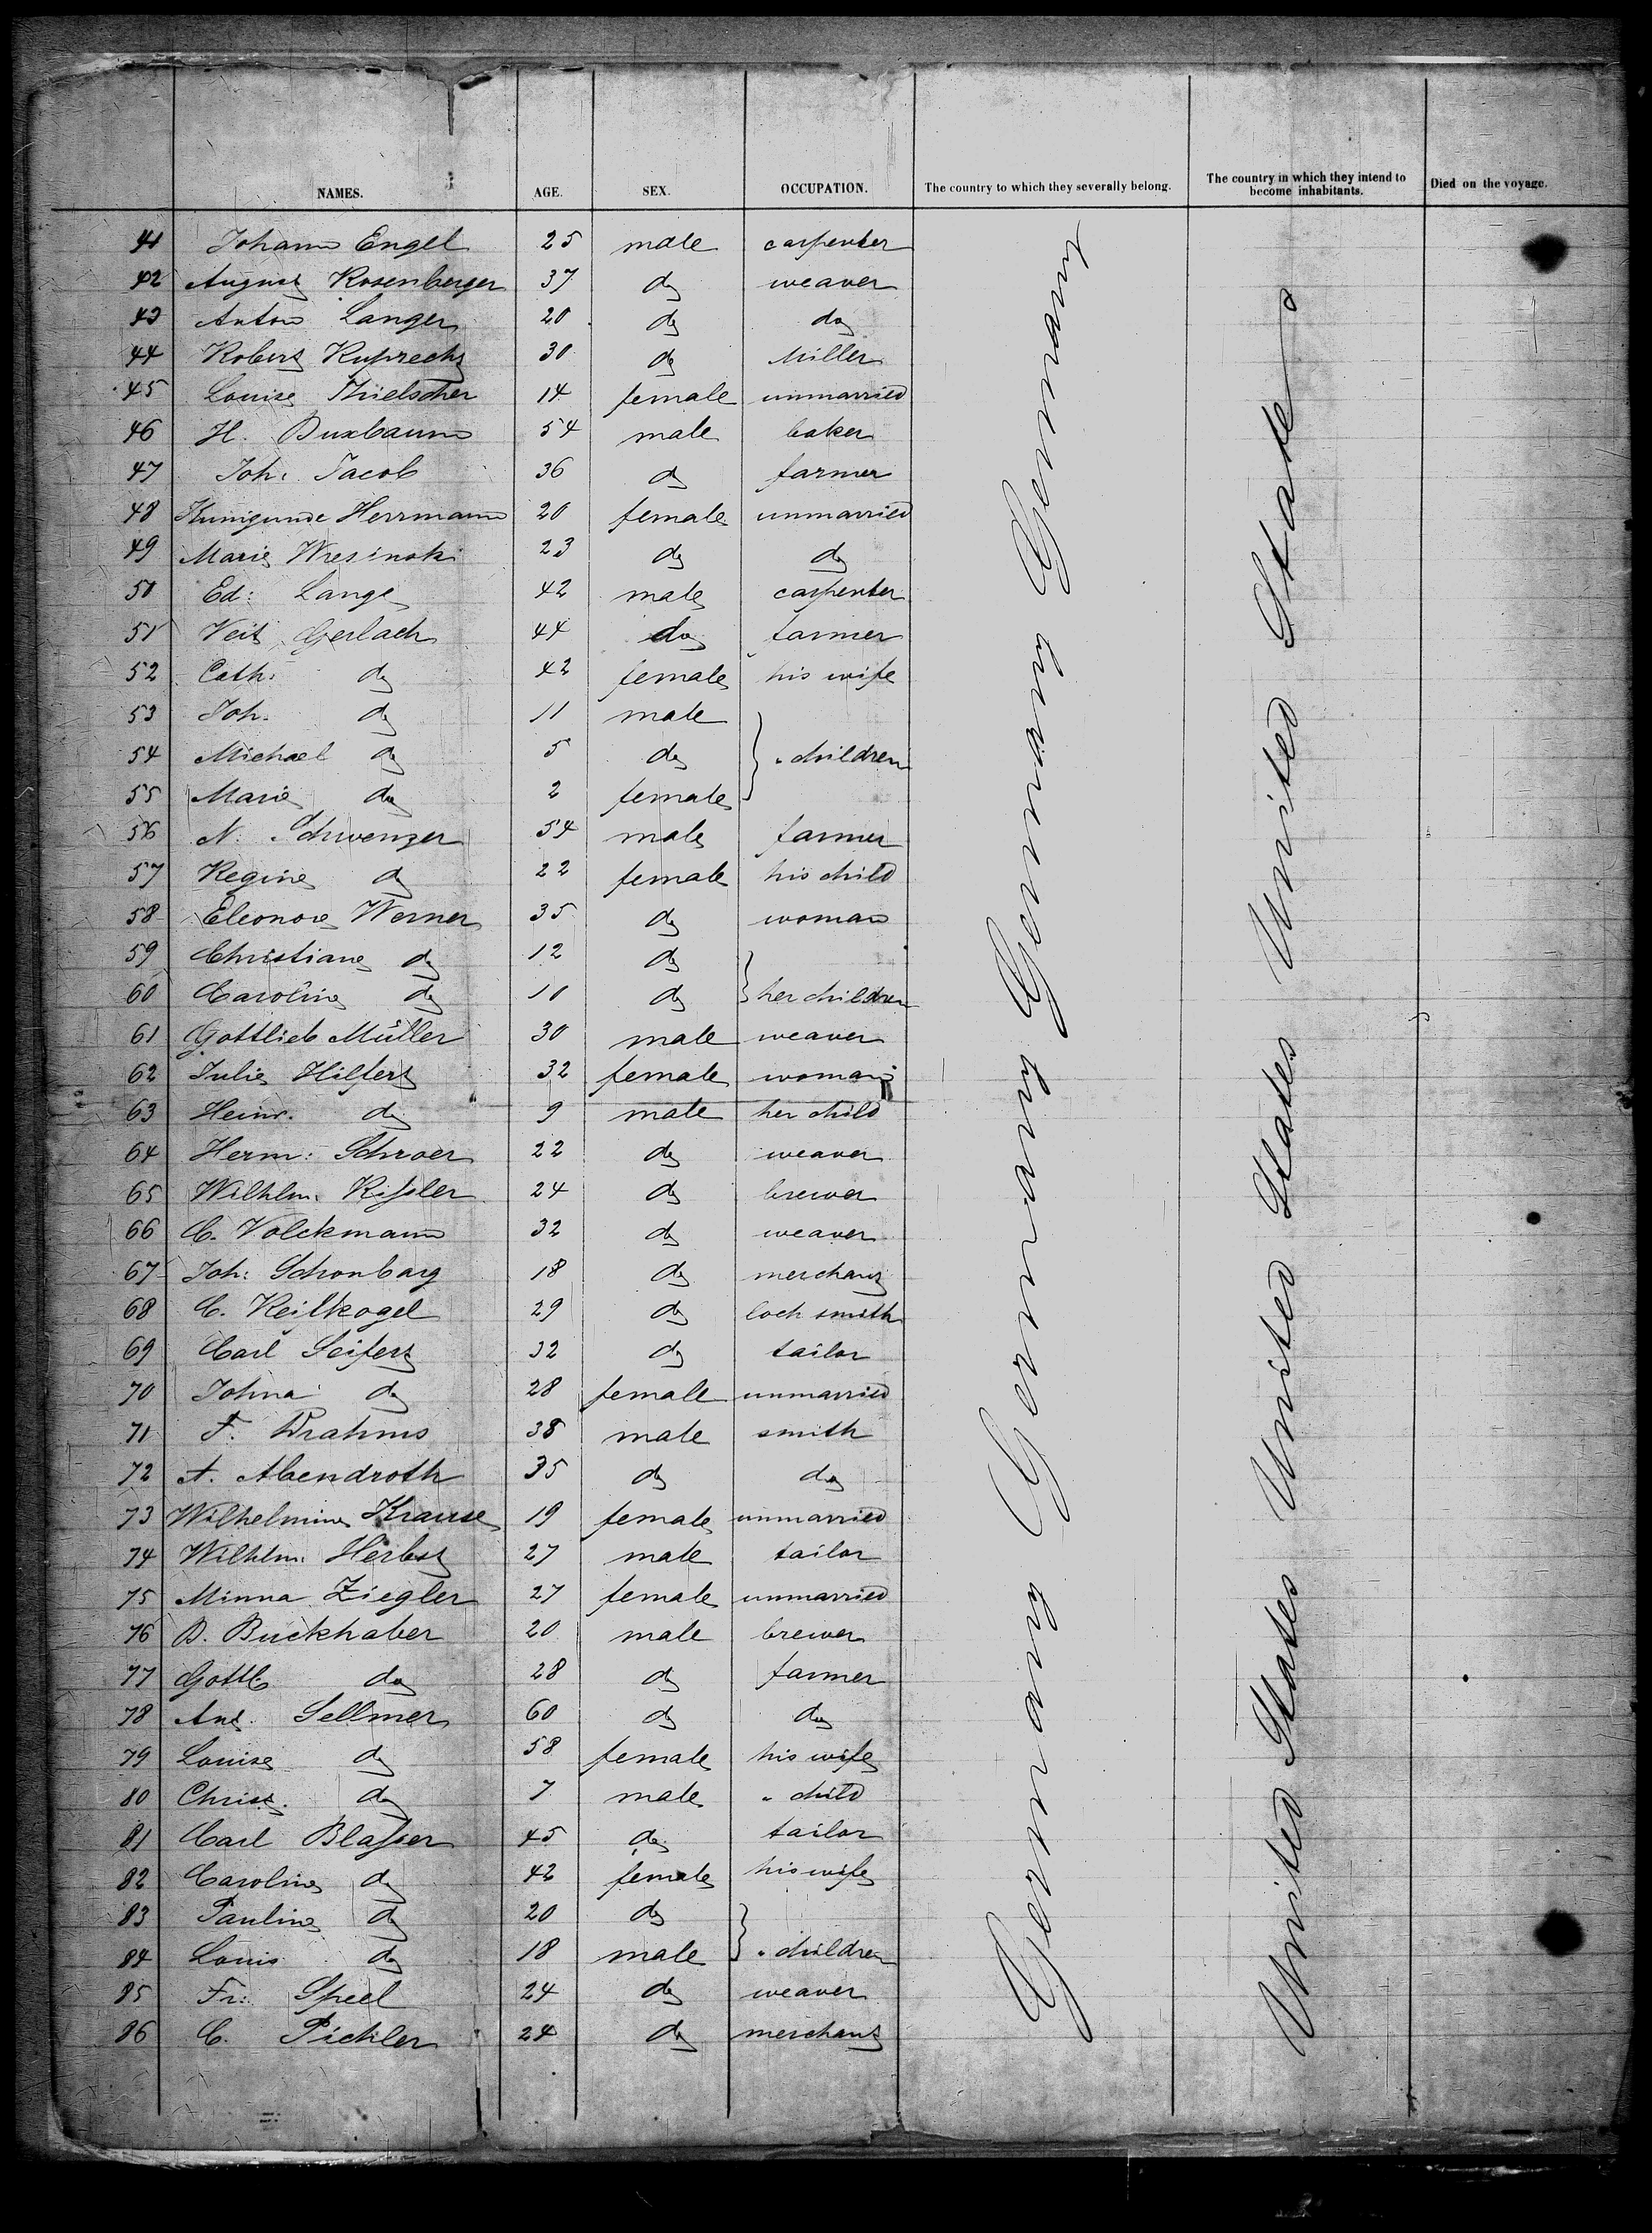 NAMES. AGE. SEX. OCCUPATION. The country to which they severally belong. The country in which they intend to become inhabitants. Died on the voyage.
41 Johann Engel 25 male carpenter
42 August Rosenberger 37 do weaver
43 Anton Langer 20 do do
44 Robert Ruprecht 30 do Miller
45 Louise Thielscher 14 female unmarried
46 H. Buxbaum 54 male baker
47 Joh: Jacob 36 do farmer
48 Kunigunde Herrmann 20 female unmarried
49 Marie Wresinski 23 do do
50 Ed: Lange 42 male carpenter
51 Veit Gerlach 44 do farmer
52 Cath: do 42 female his wife
53 Joh. do 11 male
54 Michael do 5 do " children
55 Marie do 2 female
56 N. Schwenzer 54 male farmer
57 Regine do 22 female his child
58 Eleonore Werner 35 do woman
59 Christiane do 12 do
60 Caroline do 10 do her children
61 Gottlieb Müller 30 male weaver
62 Julie Hilfert 32 female woman
63 Heinr. do 9 male her child
64 Herm: Schroer 22 do weaver
65 Wilhlm. Kissler 24 do brewer
66 C. Volckmann 32 do weaver
67 Joh: Schonbarg 18 do merchant
68 C. Keilkogel 29 do lock smith
69 Carl Seifert 32 do tailor
70 Johna do 28 female unmarried
71 F. Brahms 38 male smith
72 A. Abendroth 35 do do
73 Wilhelmine Krause 19 female unmarried
74 Wilhlm. Herbst 27 male tailor
75 Minna Ziegler 27 female unmarried
76 B. Buckhaber 20 male brewer
77 Gottlb do 28 do farmer
78 And. Sellmer 60 do do
79 Louise do 58 female his wife
80 Christ. do 7 male " child
81 Carl Blasser 45 do tailor
82 Caroline do 42 female his wife
83 Pauline do 20 do
84 Louis do 18 male " children
85 Fr: Speel 24 do weaver
86 C. Pichler 24 do merchant
Germany Germany Germany Germany
United States United States United States